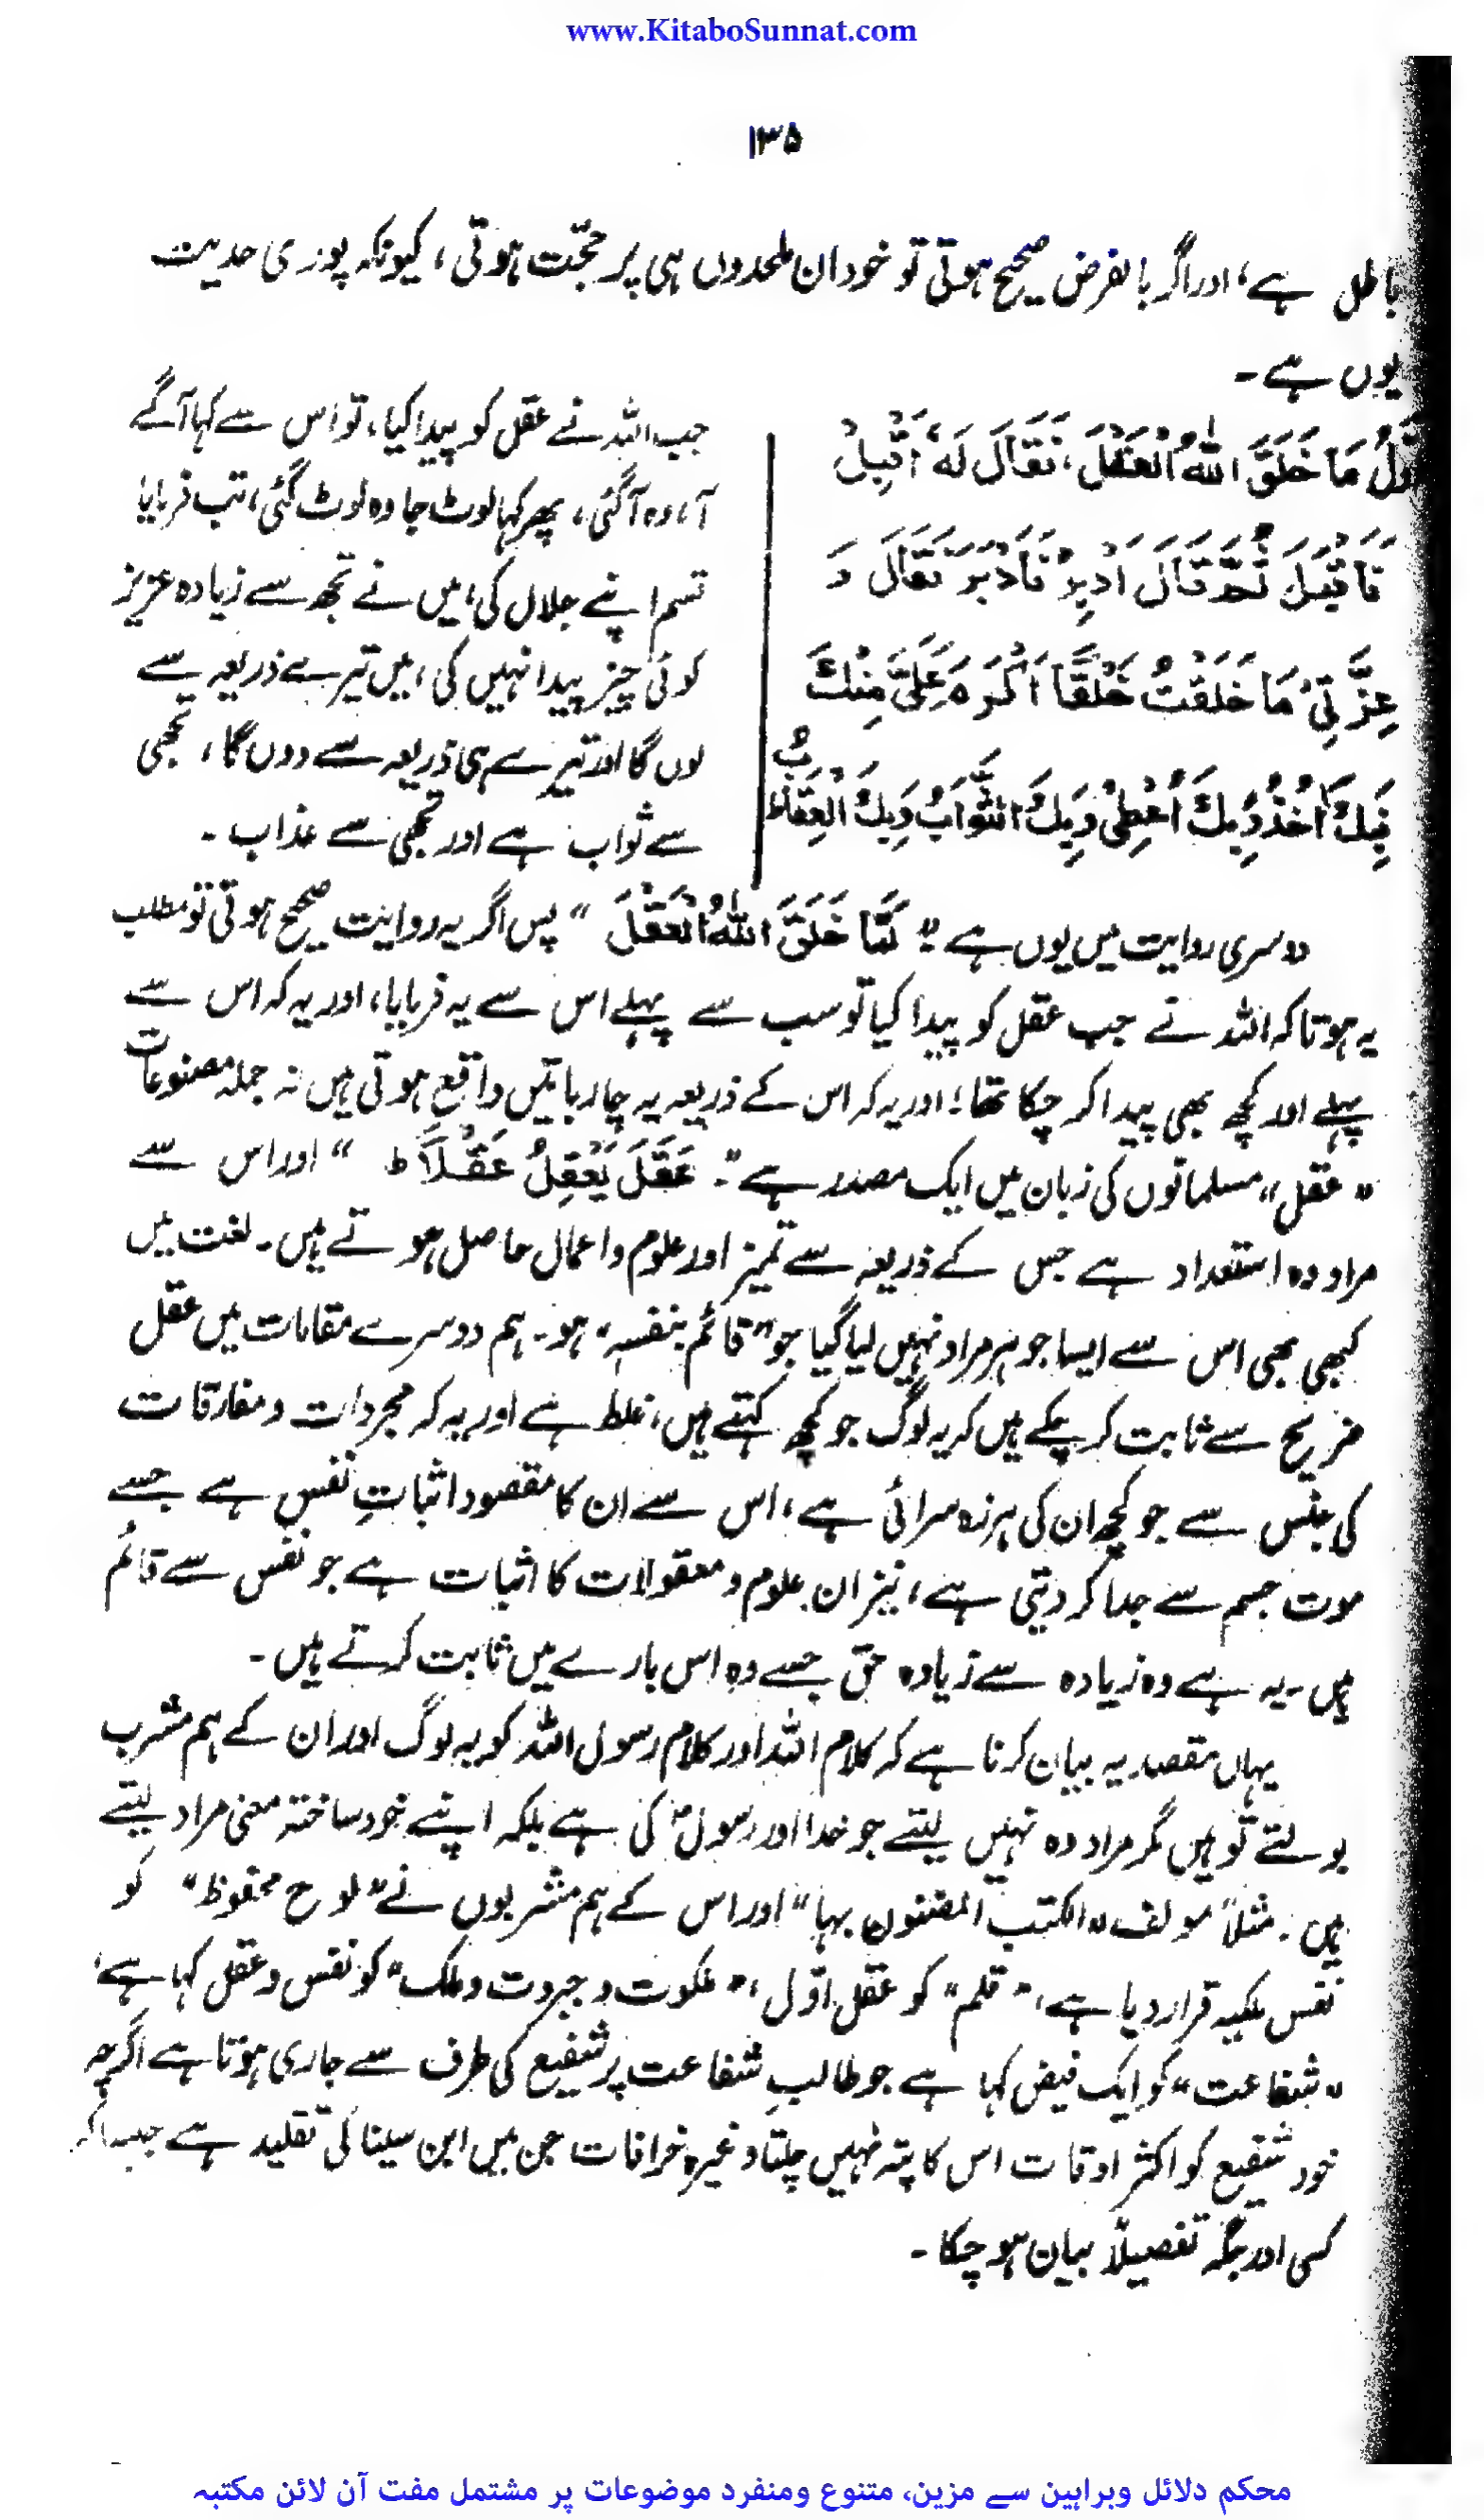 www.KitaboSunnat.com
۱۳۵
باطل ہے، اور اگر بالفرض صحیح ہوتی تو خود ان ملحدوں ہی پر حجّت ہوتی، کیونکہ پوری حدیث
یوں ہے۔
اَوَّلُ مَا خَلَقَ اللّٰهُ الْعَقْلَ، فَقَالَ لَهٗ اَقْبِلْ
فَاَقْبَلَ ثُمَّ قَالَ اَدْبِرْ فَاَدْبَرَ فَقَالَ وَ
عِزَّتِیْ مَا خَلَقْتُ خَلْقًا اَكْرَمَ عَلَیَّ مِنْكَ
فَبِكَ اٰخُذُ وَبِكَ اُعْطِیْ وَبِكَ الثَّوَابُ وَبِكَ الْعِقَابُ
جب اللہ نے عقل کو پیدا کیا، تو اس سے کہا آگے
آ، وہ آگئی، پھر کہا لوٹ جا وہ لوٹ گئی، تب فرمایا
قسم اپنے جلال کی، میں نے تجھ سے زیادہ عزیز
کوئی چیز پیدا نہیں کی، میں تیرے ذریعہ سے
لوں گا اور تیرے ہی ذریعہ سے دوں گا، تجھی
سے ثواب ہے اور تجھی سے عذاب۔
دوسری روایت میں یوں ہے " لَمَّا خَلَقَ اللّٰهُ الْعَقْلَ " پس اگر یہ روایت صحیح ہوتی تو مطلب
یہ ہوتا کہ اللہ نے جب عقل کو پیدا کیا تو سب سے پہلے اس سے یہ فرمایا، اور یہ کہ اس سے
پہلے اور کچھ بھی پیدا کر چکا تھا؛ اور یہ کہ اس کے ذریعہ یہ چار باتیں واقع ہوتی ہیں نہ جملہ مصنوعات
"عقل" مسلمانوں کی زبان میں ایک مصدر ہے "۔ عَقَلَ یَعْقِلُ عَقْلاً ط " اور اس سے
مراد وہ استعداد ہے جس کے ذریعہ سے تمیز اور علوم و اعمال حاصل ہوتے ہیں۔ لغت میں
کبھی بھی اس سے ایسا جوہر مراد نہیں لیا گیا جو "قائم بنفسہٖ" ہو۔ ہم دوسرے مقامات میں عقل
صریح سے ثابت کر چکے ہیں کہ یہ لوگ جو کچھ کہتے ہیں، غلط ہے اور یہ کہ مجردات و مفارقات
کی جنس سے جو کچھ ان کی ہرزہ سرائی ہے، اس سے ان کا مقصود اثباتِ نفس ہے جسے
موت جسم سے جدا کر دیتی ہے، نیز ان علوم و معقولات کا اثبات ہے جو نفس سے قائم
ہیں۔ یہ ہے وہ زیادہ سے زیادہ حق جسے وہ اس بارے میں ثابت کرتے ہیں۔
یہاں مقصد یہ بیان کرنا ہے کہ کلام اللہ اور کلام رسول اللہ کو یہ لوگ اور ان کے ہم مشرب
بولتے تو ہیں مگر مراد وہ نہیں لیتے جو خدا اور رسولؐ کی ہے بلکہ اپنے خود ساختہ معنی مراد لیتے
ہیں۔ مثلاً مولف "الکتب المضنون بہا" اور اس کے ہم مشربوں نے "لوح محفوظ" کو
نفس فلکیہ قرار دیا ہے، "قلم" کو عقل اوّل، "ملکوت و جبروت و ملک" کو نفس و عقل کہا ہے،
"شفاعت" کو ایک فیض کہا ہے جو طالبِ شفاعت پر شفیع کی طرف سے جاری ہوتا ہے اگرچہ
خود شفیع کو اکثر اوقات اس کا پتہ نہیں چلتا وغیرہ خرافات جن میں ابن سینا کی تقلید ہے جیسا کہ
کسی اور جگہ تفصیلاً بیان ہو چکا۔
محکم دلائل وبراہین سے مزین، متنوع ومنفرد موضوعات پر مشتمل مفت آن لائن مکتبہ